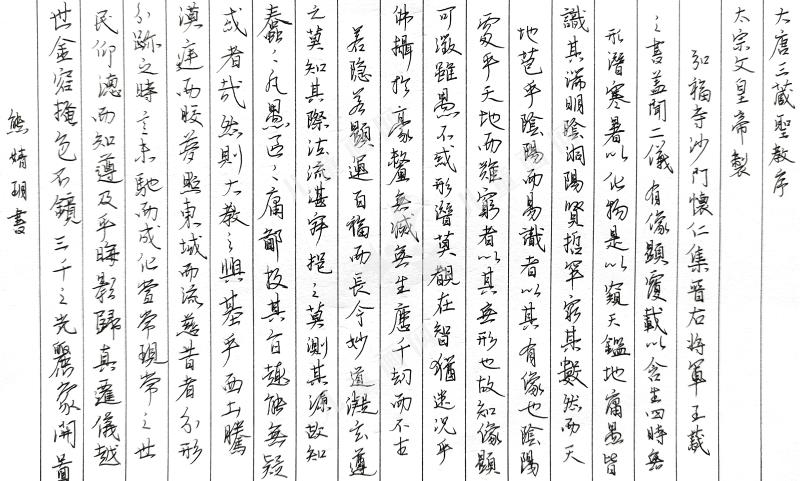 大唐三藏聖教序
太宗文皇帝製
弘福寺沙門懷仁集晉右將軍王羲
之書蓋聞二儀有像顯覆載以含生四時無
形潛寒暑以化物是以窺天鑑地庸愚皆
識其端明陰洞陽賢哲罕窮其數然而天
地苞乎陰陽而易識者以其有像也陰陽
處乎天地而難窮者以其無形也故知像顯
可徵雖愚不惑形潛莫覩在智猶迷況乎
佛攝於豪釐無滅無生歷千劫而不古
若隱若顯運百福而長今妙道凝玄遵
之莫知其際法流湛寂挹之莫測其源故知
蠢々凡愚區々庸鄙投其旨趣能無疑
或者哉然則大教之興基乎西土騰
漢庭而皎夢照東域而流慈昔者分形
分跡之時言未馳而成化當常現常之世
民仰德而知遵及乎晦影歸真遷儀越
世金容掩色不鏡三千之光麗象開圖
熊婧玥書